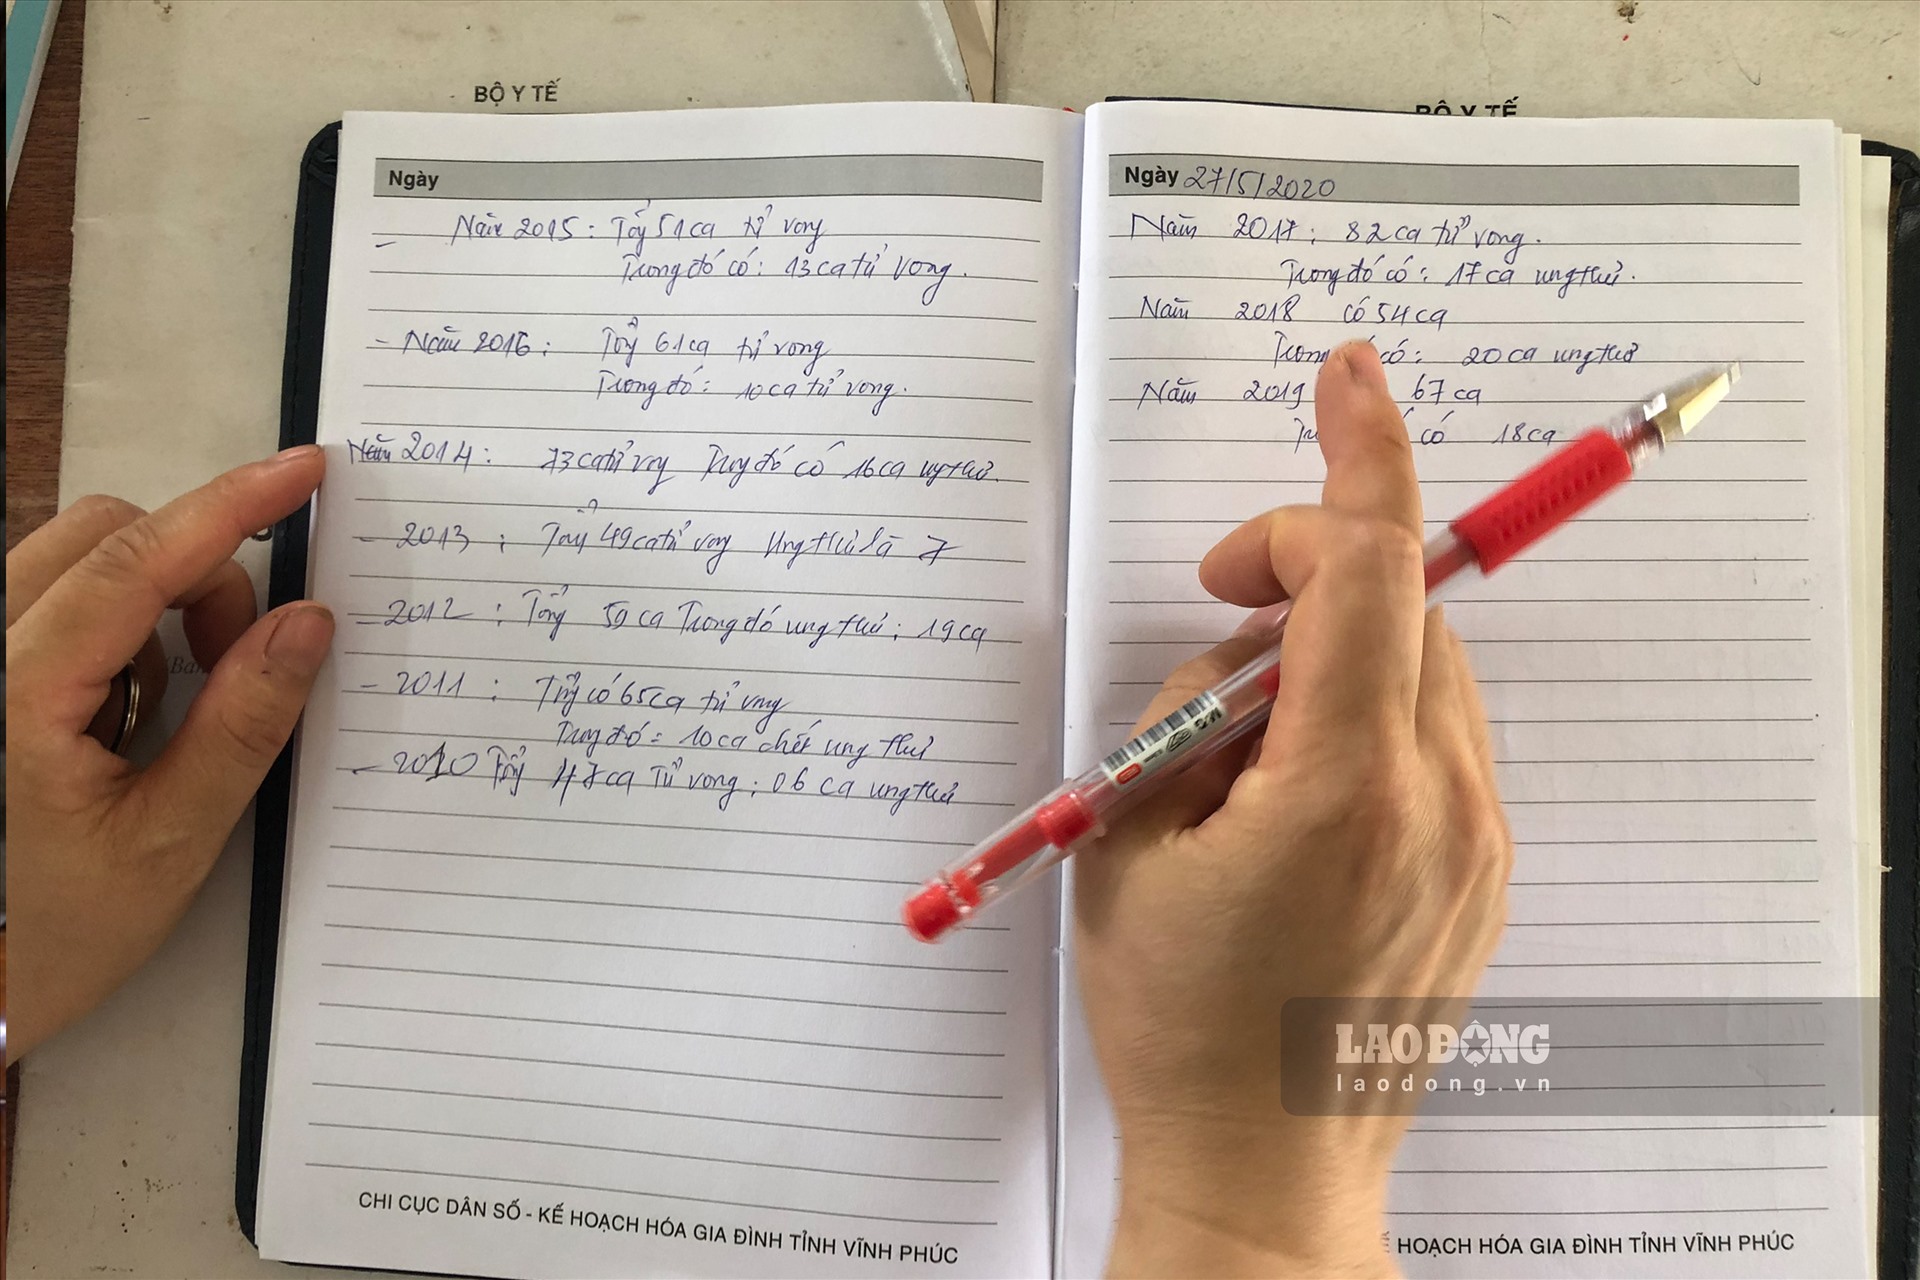 BỘ Y TẾ
BỘ Y TẾ
Ngày
- Năm 2015 : Tổng 51 ca tử vong
Trong đó có : 13 ca tử vong.
- Năm 2016 : Tổng 61 ca tử vong
Trong đó : 10 ca tử vong.
Năm 2014 : 73 ca tử vong Trong đó có 16 ca ung thư.
- 2013 : Tổng 49 ca tử vong Ung thư là 7
- 2012 : Tổng 59 ca Trong đó ung thư : 19 ca
- 2011 : Tổng có 65 ca tử vong
Trong đó : 10 ca chết ung thư
- 2010 Tổng 47 ca Tử vong ; 06 ca ung thư
CHI CỤC DÂN SỐ - KẾ HOẠCH HÓA GIA ĐÌNH TỈNH VĨNH PHÚC
Ngày 27/5/2020
Năm 2017 : 82 ca tử vong.
Trong đó có : 17 ca ung thư.
Năm 2018 có 54 ca
Trong có : 20 ca ung thư
Năm 2019 67 ca
có 18 ca
HOẠCH HÓA GIA ĐÌNH TỈNH VĨNH PHÚC
LAO ĐỘNG
laodong.vn